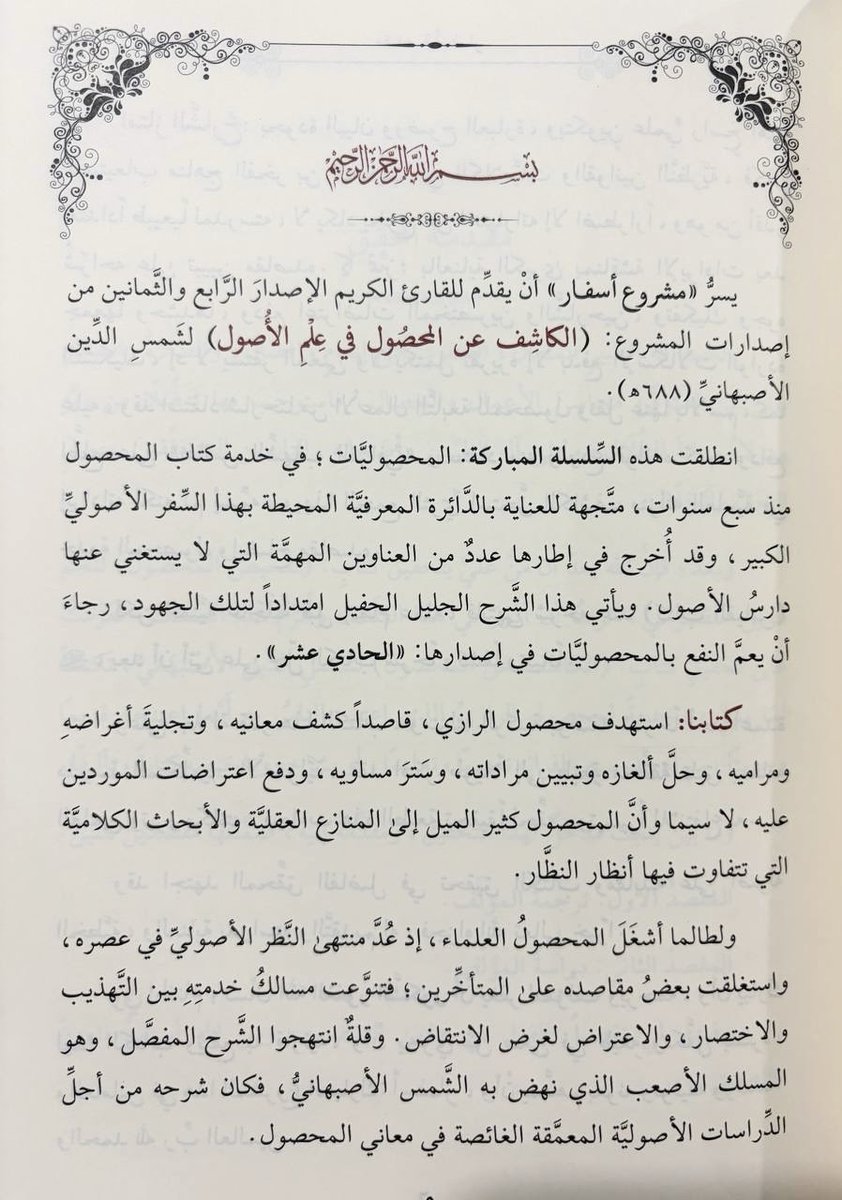 بسم الله الرحمن الرحيم
يسرُّ «مشروع أسفار» أنْ يقدِّم للقارئ الكريم الإصدارَ الرَّابع والثَّمانين من
إصدارات المشروع: (الكاشِف عن المحصُول في عِلْمِ الأُصول) لشَمسِ الدِّين
الأصبهانيِّ (٦٨٨هـ).
انطلقت هذه السِّلسلة المباركة: المحصوليَّات؛ في خدمة كتاب المحصول
منذ سبع سنوات، متَّجهة للعناية بالدَّائرة المعرفيَّة المحيطة بهذا السِّفر الأصوليِّ
الكبير، وقد أُخرج في إطارها عددٌ من العناوين المهمَّة التي لا يستغني عنها
دارسُ الأصول. ويأتي هذا الشَّرح الجليل الحفيل امتداداً لتلك الجهود، رجاءَ
أنْ يعمَّ النفع بالمحصوليَّات في إصدارها: «الحادي عشر».
كتابنا: استهدف محصول الرازي، قاصداً كشف معانيه، وتجليةَ أغراضهِ
ومراميه، وحلَّ ألغازه وتبيين مراداته، وسَترَ مساويه، ودفع اعتراضات الموردين
عليه، لا سيما وأنَّ المحصول كثير الميل إلىٰ المنازع العقليَّة والأبحاث الكلاميَّة
التي تتفاوت فيها أنظار النظَّار.
ولطالما أشغَلَ المحصولُ العلماء، إذ عُدَّ منتهىٰ النَّظر الأصوليِّ في عصره،
واستغلقت بعضُ مقاصده علىٰ المتأخِّرين؛ فتنوَّعت مسالكُ خدمتِهِ بين التَّهذيب
والاختصار، والاعتراض لغرض الانتقاض. وقلةٌ انتهجوا الشَّرح المفصَّل، وهو
المسلك الأصعب الذي نهض به الشَّمس الأصبهانيُّ، فكان شرحه من أجلِّ
الدِّراسات الأصوليَّة المعمَّقة الغائصة في معاني المحصول.